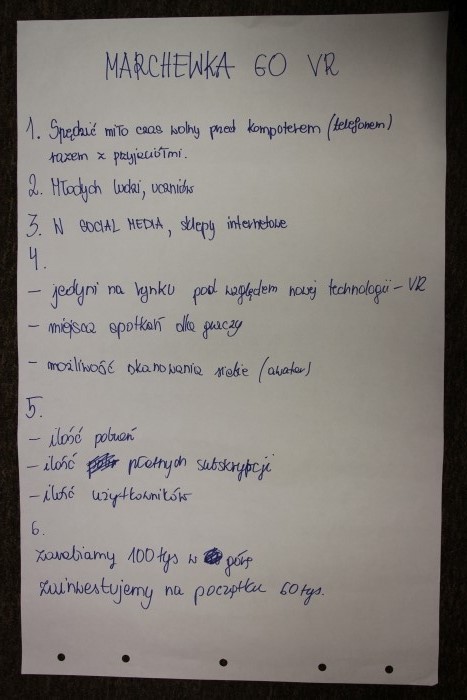 MARCHEWKA GO VR
1. Spędzić miło czas wolny przed komputerem (telefonem)
razem z przyjaciółmi.
2. Młodych ludzi, uczniów
3. W SOCIAL MEDIA, sklepy internetowe
4.
- jedyni na rynku pod względem nowej technologii - VR
- miejsca spotkań dla graczy
- możliwość skanowania siebie (awatar)
5.
- ilość pobrań
- ilość płatnych subskrypcji
- ilość użytkowników
6.
Zarabiamy 100 tys w górę
zainwestujemy na początku 60 tys.